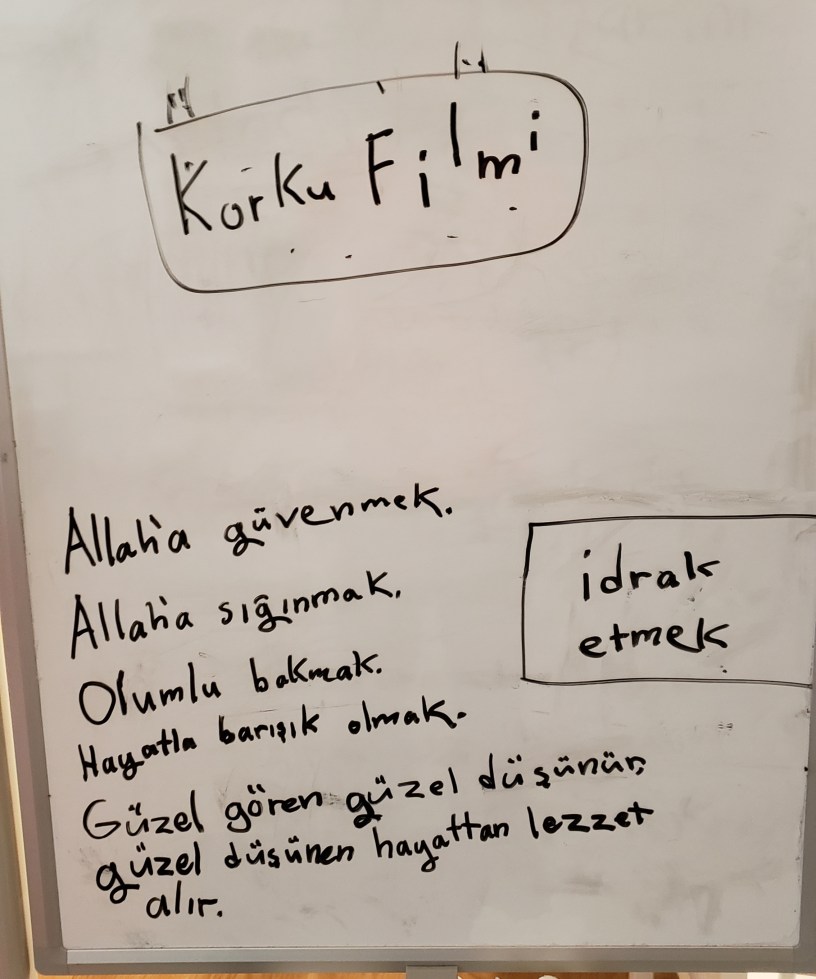 Korku Filmi
Allah'a güvenmek.
Allah'a sığınmak.
Olumlu bakmak.
Hayatla barışık olmak.
Güzel gören güzel düşünür,
güzel düşünen hayattan lezzet
alır.
idrak
etmek